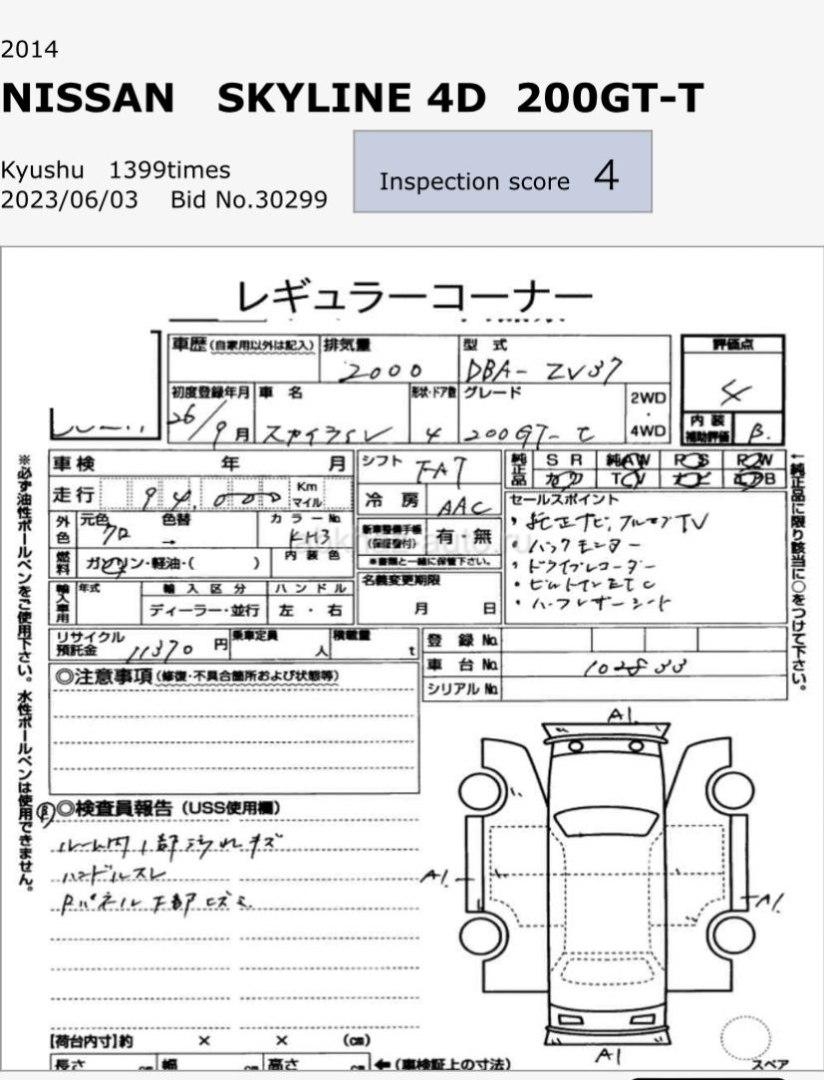 2014
NISSAN SKYLINE 4D 200GT-T
Kyushu 1399times
2023/06/03 Bid No.30299
Inspection score 4
レギュラーコーナー
車歴(自家用以外は記入) 排気量 型 式 評価点
2000 DBA- ZV37 4
初度登録年月 車 名 形状・ドア数 グレード 2WD
26/9月 スカイライン 4 200GT-t ・ 4WD
内装補助評価 B.
車検 年 月 シフト FAT 純正品 SR 純AW PS PW
走行 94,000 Km マイル 冷房 AAC カワ TV ナビ エアB
外色 元色 クロ 色替 → カラーNo. KH3
新車整備手帳(保証書付) 有 無
※書類と一緒に保管下さい。
燃料 ガソリン・軽油・( ) 内装色
セールスポイント
・純正ナビ,フルセグTV
・バックモニター
・ドライブレコーダー
・ビルトインETC
・ハーフレザーシート
輸入車用 年式 輸入区分 ハンドル
ディーラー・並行 左・右
名義変更期限
月 日
リサイクル預託金 11370 円 乗車定員 人 積載量 t
登録No.
車台No. 102833
シリアルNo.
◎注意事項(修復・不具合箇所および状態等)
◎検査員報告(USS使用欄)
ルーム内1部汚れキズ
ハンドルスレ
Rパネル下部ヒズミ
A1.
A1.
A1.
A1
スペア
【荷台内寸】約 × × (㎝)
長さ ㎝ 幅 ㎝ 高さ ㎝ ←(車検証上の寸法)
※必ず油性ボールペンをご使用下さい。水性ボールペンは使用できません。
←純正品に限り該当に○をつけて下さい。